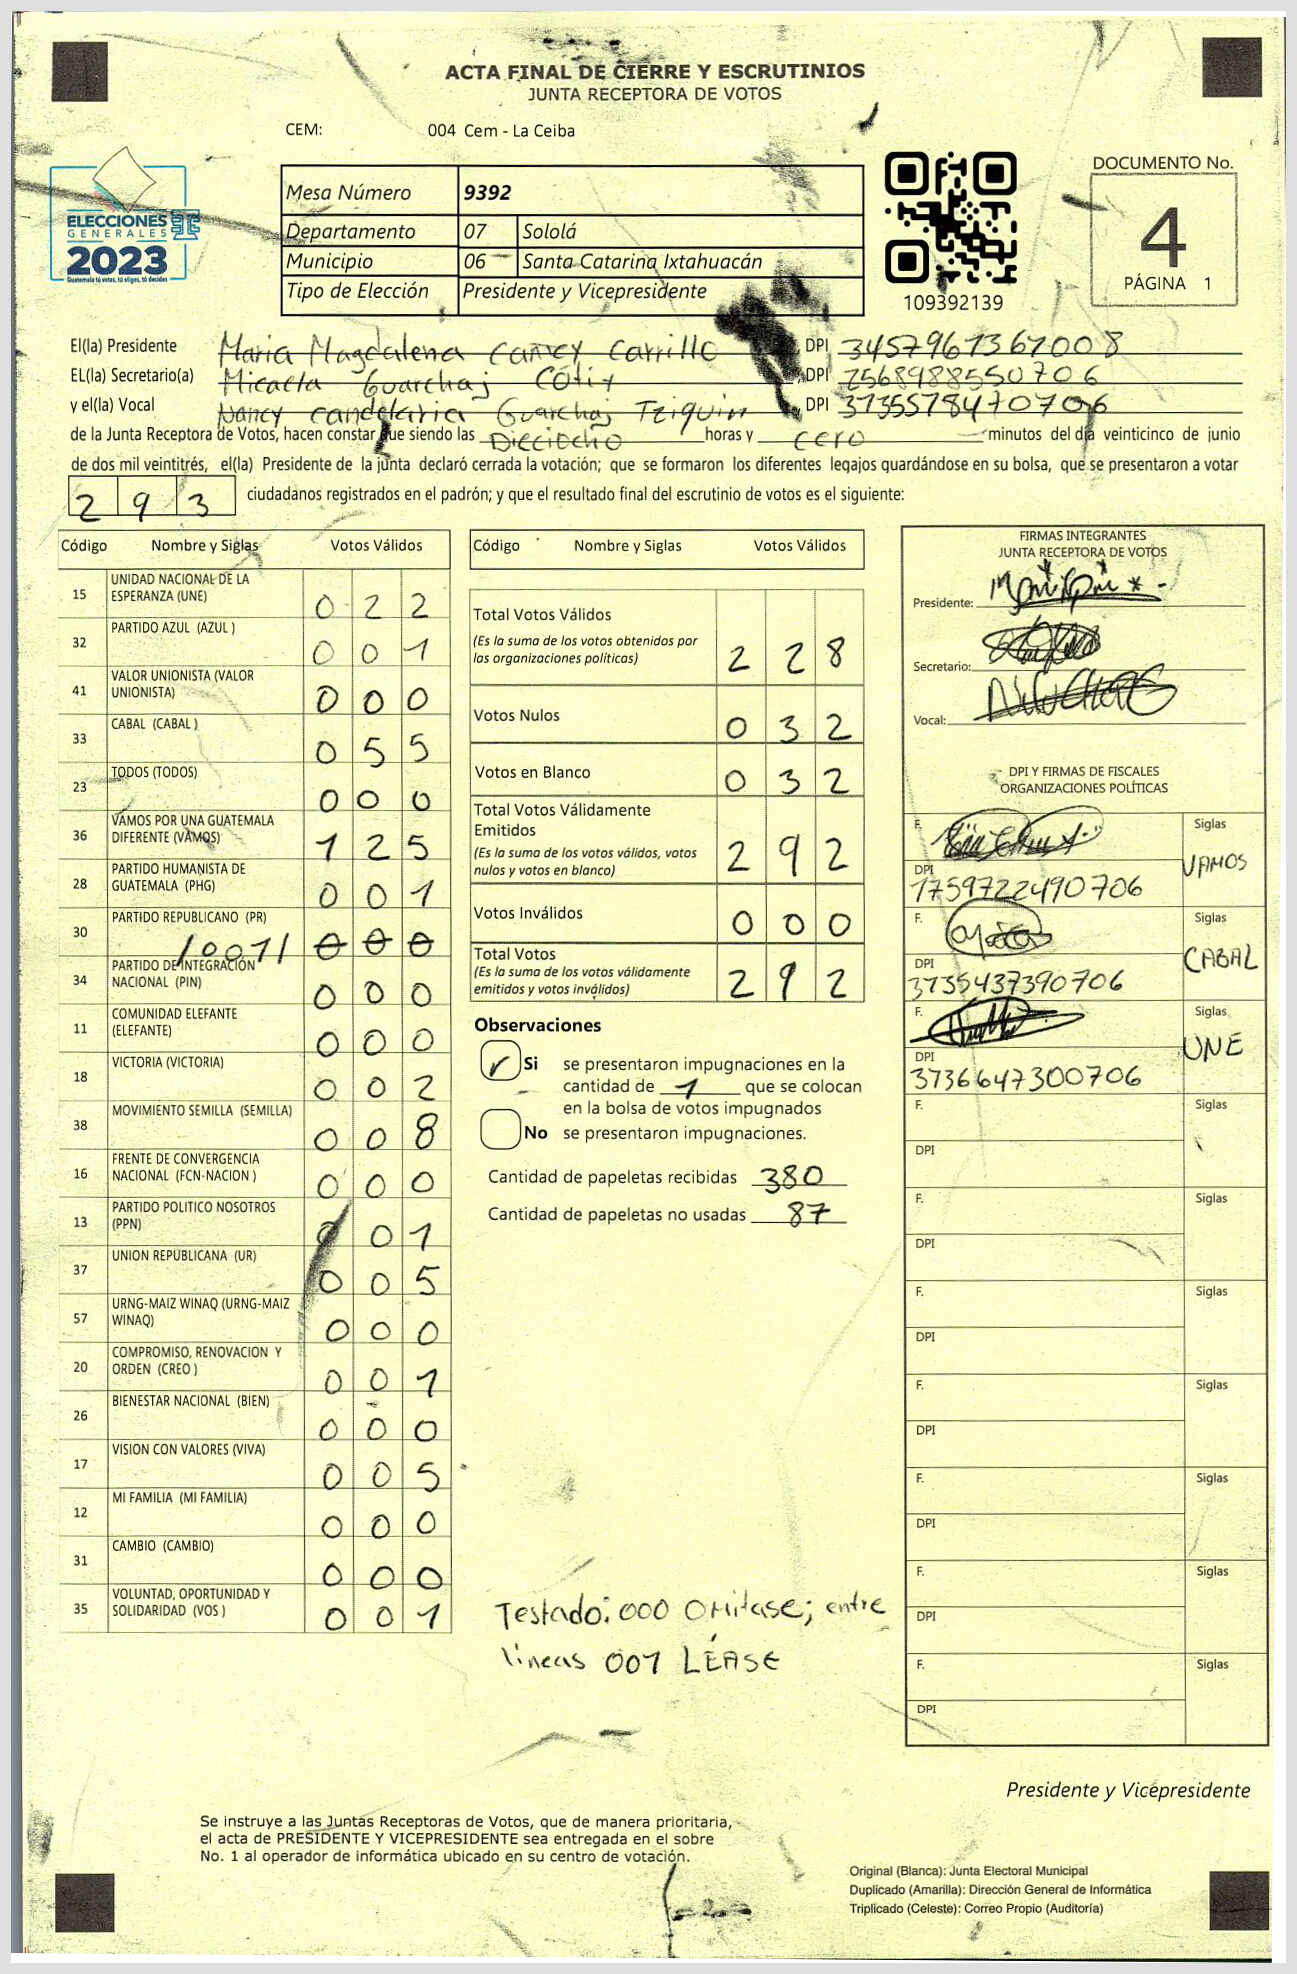 ACTA FINAL DE CIERRE Y ESCRUTINIOS
JUNTA RECEPTORA DE VOTOS
CEM: 004 Cem - La Ceiba
ELECCIONES
GENERALES
2023
Guatemala tú votas, tú eliges, tú decides
Mesa Número 9392
Departamento 07 Sololá
Municipio 06 Santa Catarina Ixtahuacán
Tipo de Elección Presidente y Vicepresidente
109392139
DOCUMENTO No.
4
PÁGINA 1
El(la) Presidente Maria Magdalena Camey Carrillo DPI 3457961361008
EL(la) Secretario(a) Micaela Guarchaj Cotiy DPI 2568988550706
y el(la) Vocal Nancy Candelaria Guarchaj Tziquin DPI 3735578470706
de la Junta Receptora de Votos, hacen constar que siendo las Dieciocho horas y cero minutos del día veinticinco de junio
de dos mil veintitrés, el(la) Presidente de la junta declaró cerrada la votación; que se formaron los diferentes legajos guardándose en su bolsa, que se presentaron a votar
293 ciudadanos registrados en el padrón; y que el resultado final del escrutinio de votos es el siguiente:
Código Nombre y Siglas Votos Válidos
15 UNIDAD NACIONAL DE LA ESPERANZA (UNE) 022
32 PARTIDO AZUL (AZUL ) 001
41 VALOR UNIONISTA (VALOR UNIONISTA) 000
33 CABAL (CABAL ) 055
23 TODOS (TODOS) 000
36 VAMOS POR UNA GUATEMALA DIFERENTE (VAMOS) 125
28 PARTIDO HUMANISTA DE GUATEMALA (PHG) 001
30 PARTIDO REPUBLICANO (PR) /001/ 000
34 PARTIDO DE INTEGRACIÓN NACIONAL (PIN) 000
11 COMUNIDAD ELEFANTE (ELEFANTE) 000
18 VICTORIA (VICTORIA) 002
38 MOVIMIENTO SEMILLA (SEMILLA) 008
16 FRENTE DE CONVERGENCIA NACIONAL (FCN-NACION ) 000
13 PARTIDO POLITICO NOSOTROS (PPN) 001
37 UNION REPUBLICANA (UR) 005
57 URNG-MAIZ WINAQ (URNG-MAIZ WINAQ) 000
20 COMPROMISO, RENOVACION Y ORDEN (CREO ) 001
26 BIENESTAR NACIONAL (BIEN) 000
17 VISION CON VALORES (VIVA) 005
12 MI FAMILIA (MI FAMILIA) 000
31 CAMBIO (CAMBIO) 000
35 VOLUNTAD, OPORTUNIDAD Y SOLIDARIDAD (VOS ) 001
Código Nombre y Siglas Votos Válidos
Total Votos Válidos 228
(Es la suma de los votos obtenidos por
las organizaciones políticas)
Votos Nulos 032
Votos en Blanco 032
Total Votos Válidamente
Emitidos 292
(Es la suma de los votos válidos, votos
nulos y votos en blanco)
Votos Inválidos 000
Total Votos 292
(Es la suma de los votos válidamente
emitidos y votos inválidos)
Observaciones
Si se presentaron impugnaciones en la
cantidad de 1 que se colocan
en la bolsa de votos impugnados
No se presentaron impugnaciones.
Cantidad de papeletas recibidas 380
Cantidad de papeletas no usadas 87
Testado: 000 Omitase; entre
lineas 001 LÉASE
FIRMAS INTEGRANTES
JUNTA RECEPTORA DE VOTOS
Presidente:
Secretario:
Vocal:
DPI Y FIRMAS DE FISCALES
ORGANIZACIONES POLÍTICAS
F. Siglas
VAMOS
DPI
1759722490706
F. Siglas
CABAL
DPI
3735437390706
F. Siglas
UNE
DPI
3736647300706
F. Siglas
DPI
F. Siglas
DPI
F. Siglas
DPI
F. Siglas
DPI
F. Siglas
DPI
F. Siglas
DPI
F. Siglas
DPI
Presidente y Vicepresidente
Se instruye a las Juntas Receptoras de Votos, que de manera prioritaria,
el acta de PRESIDENTE Y VICEPRESIDENTE sea entregada en el sobre
No. 1 al operador de informática ubicado en su centro de votación.
Original (Blanca): Junta Electoral Municipal
Duplicado (Amarilla): Dirección General de Informática
Triplicado (Celeste): Correo Propio (Auditoría)